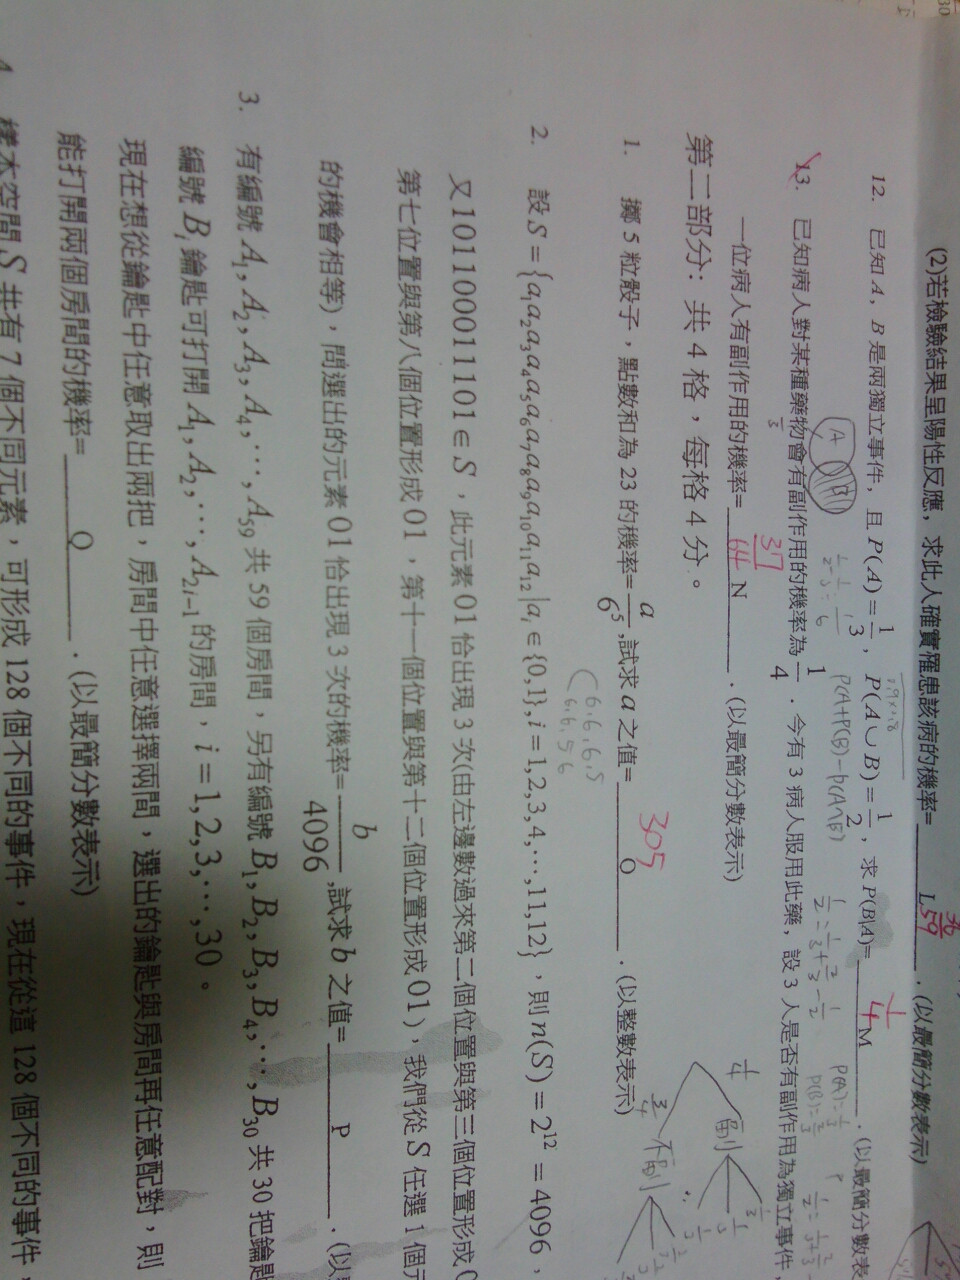 (2)若檢驗結果呈陽性反應，求此人確實罹患該病的機率=____L____．(以最簡分數表示)
59
12. 已知 A，B 是兩獨立事件，且 P(A)=1/3，P(A∪B)=1/2，求 P(B|A)=____M____．(以最簡分數表
1/4
P(A)+P(B)-P(A∩B)
13. 已知病人對某種藥物會有副作用的機率為 1/4．今有 3 病人服用此藥，設 3 人是否有副作用為獨立事件，
一位病人有副作用的機率=____N____．(以最簡分數表示)
37/64
1/4 副
3/4 不副
第二部分：共 4 格，每格 4 分。
1. 擲 5 粒骰子，點數和為 23 的機率=a/6⁵,試求 a 之值=____O____．(以整數表示)
305
6.6.6.5
6.6.5 6
2. 設 S={a₁a₂a₃a₄a₅a₆a₇a₈a₉a₁₀a₁₁a₁₂|aᵢ∈{0,1},i=1,2,3,4,⋯,11,12}，則 n(S)=2¹²=4096，
又101100011101∈S，此元素 01 恰出現 3 次(由左邊數過來第二個位置與第三個位置形成0
第七位置與第八個位置形成01，第十一個位置與第十二個位置形成01)，我們從 S 任選 1 個元
的機會相等)，問選出的元素 01 恰出現 3 次的機率=b/4096,試求 b 之值=____P____．(以
3. 有編號 A₁,A₂,A₃,A₄,⋯,A₅₉ 共 59 個房間，另有編號 B₁,B₂,B₃,B₄,⋯,B₃₀ 共 30 把鑰匙
編號 Bᵢ 鑰匙可打開 A₁,A₂,⋯,A₂ᵢ₋₁ 的房間，i=1,2,3,⋯,30。
現在想從鑰匙中任意取出兩把，房間中任意選擇兩間，選出的鑰匙與房間再任意配對，則
能打開兩個房間的機率=____Q____．(以最簡分數表示)
樣本空間 S 共有 7 個不同元素，可形成 128 個不同的事件，現在從這 128 個不同的事件，